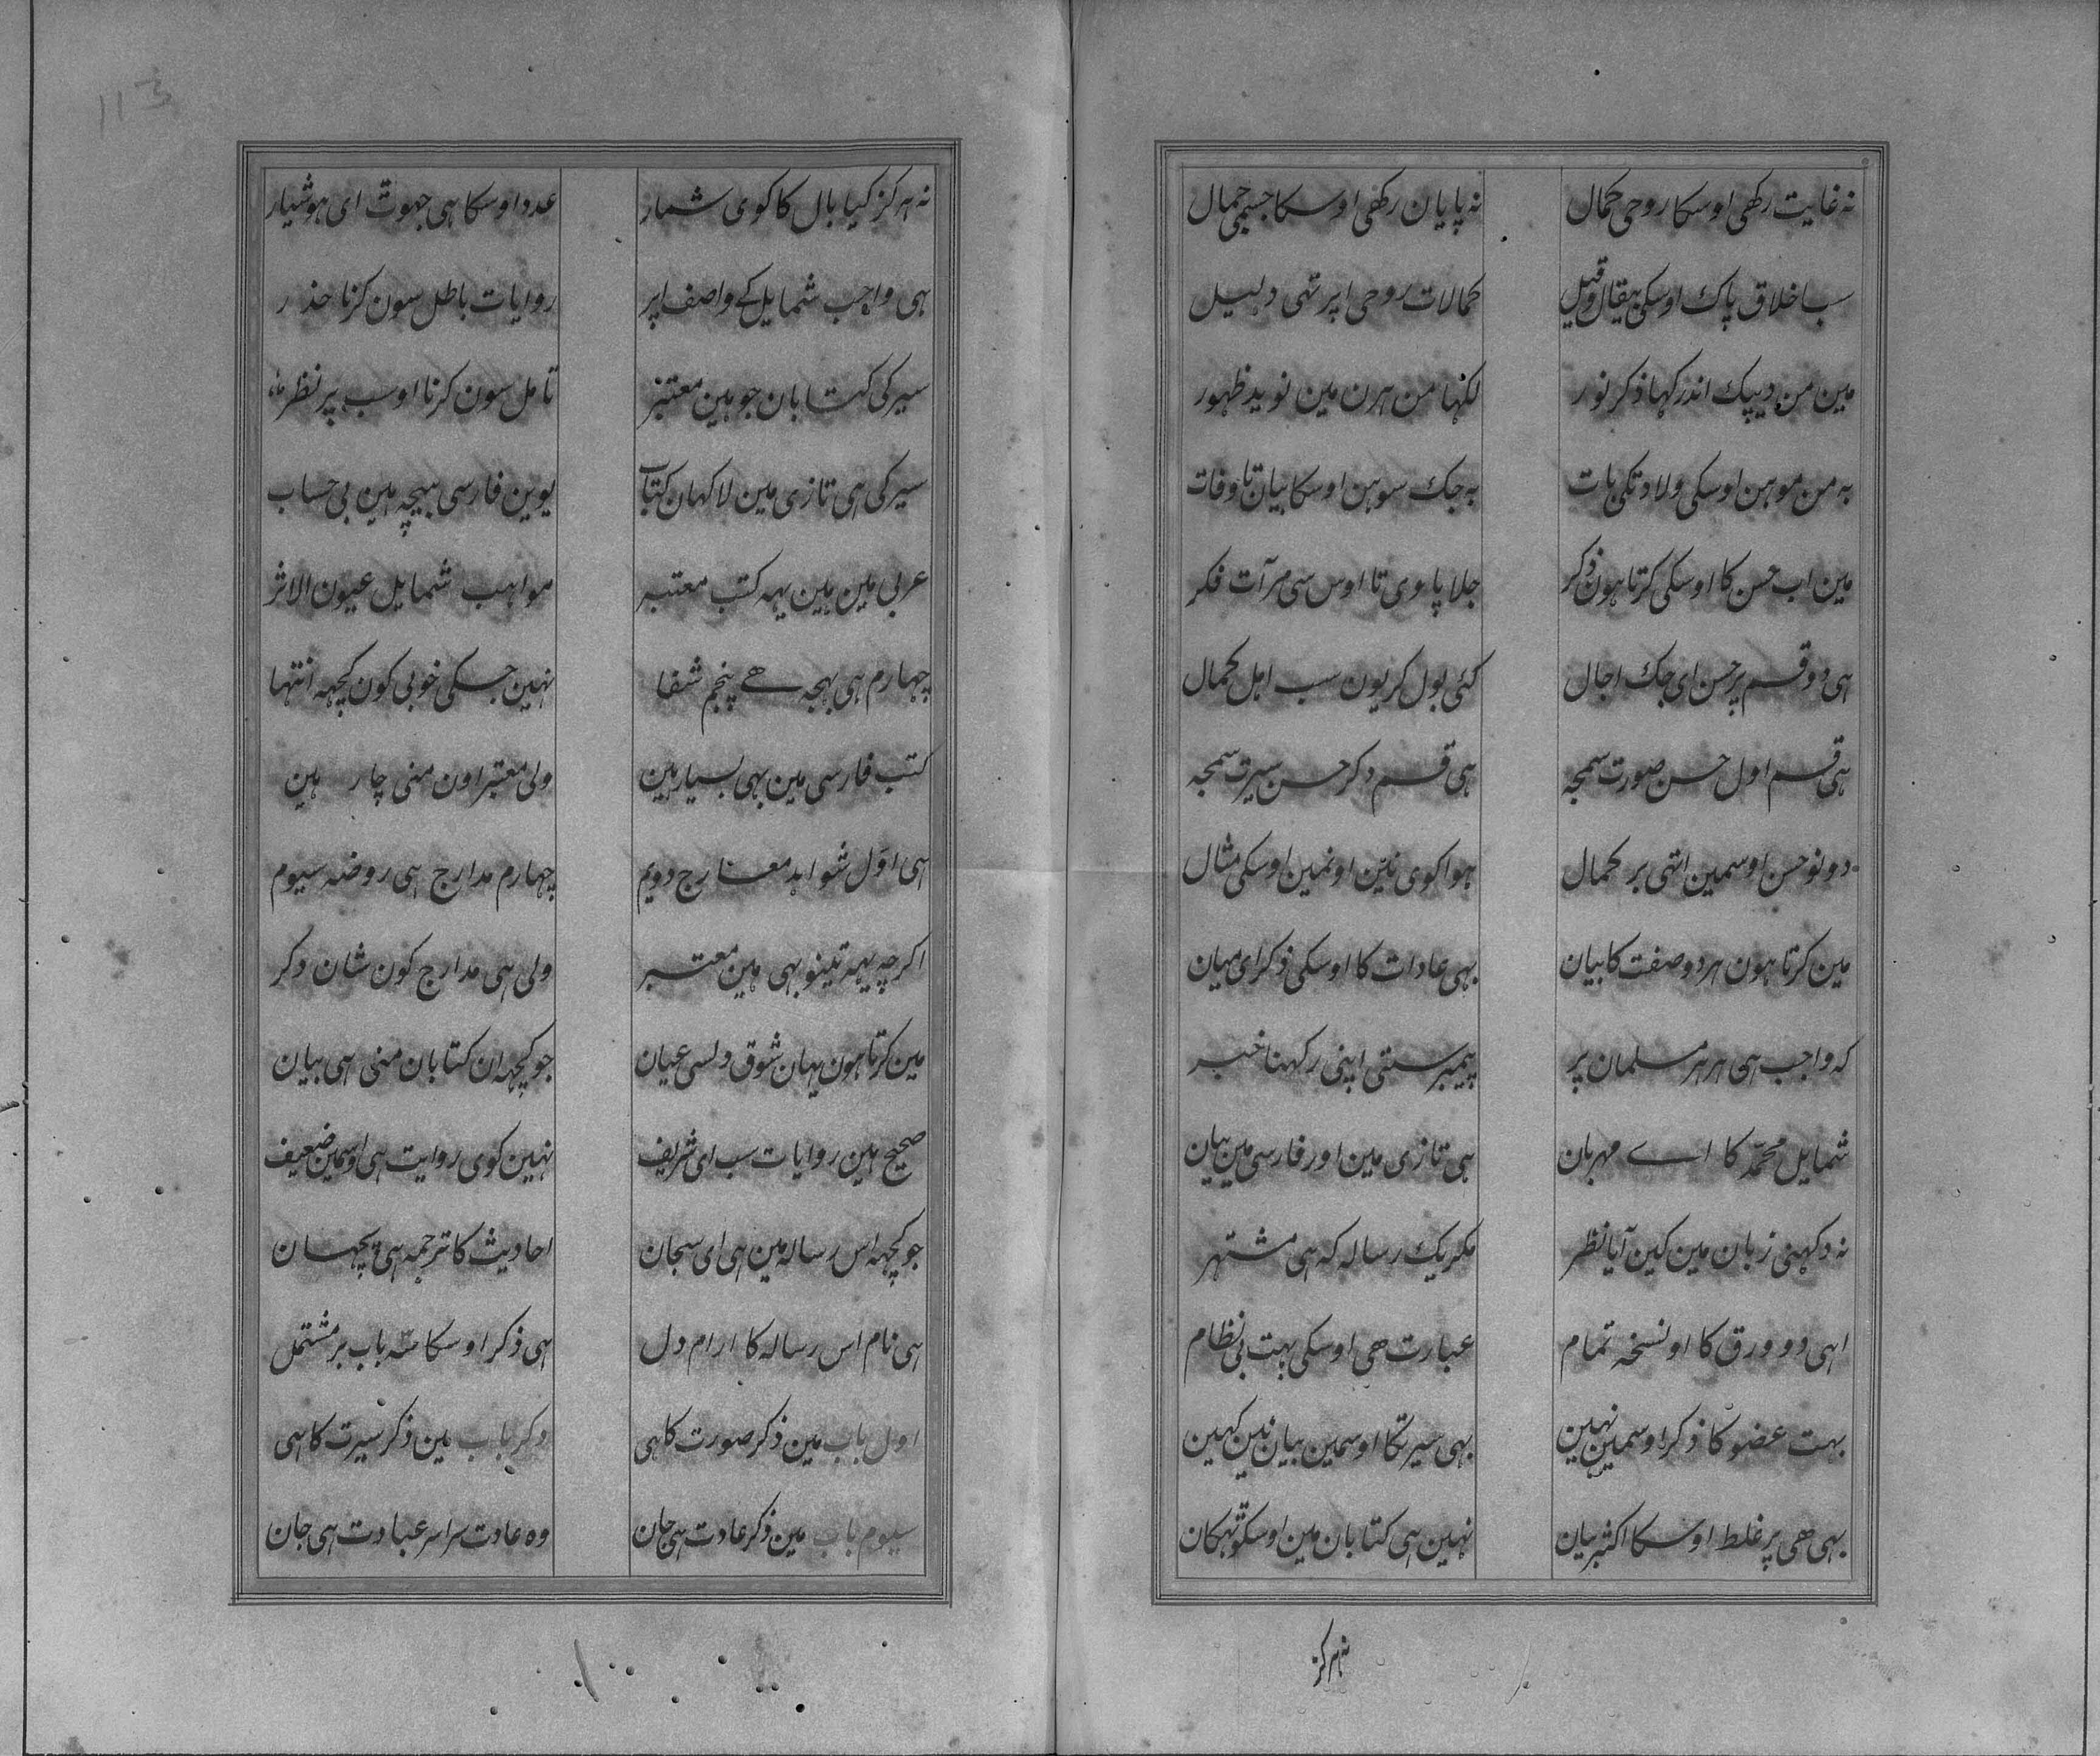 نہ غایت رکھی اوسکا روحی کمال نہ پایان رکھی اوسکا جسمی جمال
سب اخلاق پاک اوسکی بیقال وقیل کمالات روحی اپر تھی دلیل
مین من دیپک اندر کہا ذکر نور لکھا من ہرن مین نوید ظہور
بہ من موہن اوسکی ولادتکی بات بہ جک سوہن اوسکا بیان تا وفات
مین اب حسن کا اوسکی کرتا ہون ذکر جلا پاوی تا اوس سی مرآت فکر
ہی دو قسم پر حسن ای جک اجال کئی بول کر یون سب اہل کمال
ہی قسم اول حسن صورت سمجہ ہی قسم دکر حسن سیرت سمجہ
دونو حسن اوسمین اتہی بر کمال ہوا کوی نئین اونمین اوسکی مثال
مین کرتا ہون ہر دو صفت کا بیان بہی عادات کا اوسکی ذکر ای میان
کہ واجب ہی ہر ہر مسلمان پر پیمبر ستی اپنی رکہنا خبر
شمایل محمّد کا اے مہربان ہی تازی مین اور فارسی مین بیان
نہ دکہنی زبان مین کین آیا نظر مکر یک رسالہ کہ ہی مشتہر
اہی دو ورق کا او نسخہ تمام عبارت حی اوسکی بہت بی نظام
بہت عضو کا ذکر اوسمین نہین بہی سیرتکا اوسمین بیان نین کہین
بہی ھی پر غلط اوسکا اکثر بیان نہین ہی کتابان مین اوسکو تہکان
نہ ہرکز
113
نہ ہرکز کیا بال کا کوی شمار عدد اوسکا ہی جہوت ای ہوشیار
ہی واجب شمایل کے واصف اپر روایات باطل سون کرنا حذر
سیر کی کتابان جو ہین معتبر تامل سون کرنا اوسب پر نظر
سیر کی ہی تازی مین لاکہان کتاب یوین فارسی بیچہ ہین بی حساب
عربی مین ہین یہہ کتب معتبر مواہب شمایل عیون الاثر
چہارم ہی بہجہ ھے پنجم شفا نہین جسکی خوبی کون کچہہ انتہا
کتب فارسی مین بہی بسیار ہین ولی معتبر اون منی چار ہین
ہی اوّل شواہد معارج دویم چہارم مدارج ہی روضہ سیوم
اکرچہ یہہ تینو بہی ہین معتبر ولی ہی مدارج کون شان دکر
مین کرتا ہون یہان شوق دلسی عیان جو کچہہ ان کتابان منی ہی بیان
صحیح ہین روایات سب ای شریف نہین کوی روایت ہی اوسمین ضعیف
جو کچہہ اس رسالہ مین ہی ای سجان احادیث کا ترجمہ ہی پچہان
ہی نام اس رسالہ کا ارام دل ہی ذکر اوسکا سہ باب بر مشتمل
اول باب مین ذکر صورت کا ہی دکر باب مین ذکر سیرت کا ہی
سیوم باب مین ذکر عادت ہی جان وہ عادت سراسر عبادت ہی جان